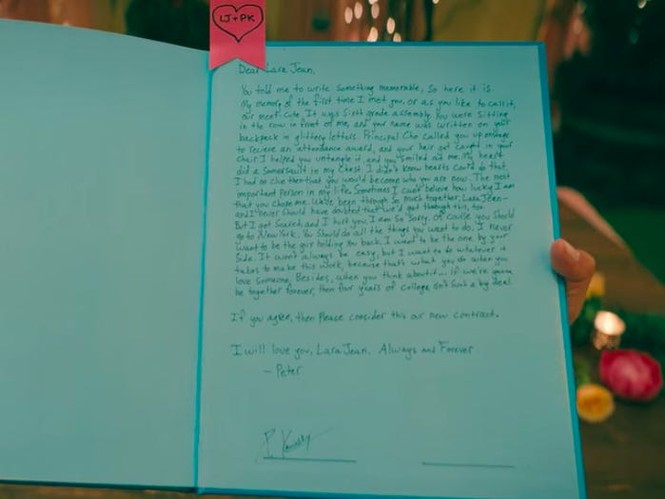 LJ + PK
Dear Lara Jean,
You told me to write something memorable, so here it is.
My memory of the first time I met you, or as you like to call it,
our meet-cute. It was sixth grade assembly. You were sitting
in the row in front of me, and your name was written on your
backpack in glittery letters. Principal Cho called you up onstage
to recieve an attendance award, and your hair got caught in your
chair. I helped you untangle it, and you smiled at me. My heart
did a somersault in my chest. I didn't know hearts could do that.
I had no clue then that you would become who you are now. The most
important person in my life. Sometimes I can't believe how lucky I am
that you chose me. We've been through so much together, Lara Jean-
and I never should have doubted that we'd get through this, too.
But I got scared and I hurt you. I am so sorry. Of cause you should
go to New York. You should do all the things you want to do. I never
want to be the guy holding you back. I want to be the one by your
side. It wont always be easy, but I want to do whatever it
takes to make this work, because that's what you do when you
love someone. Besides, when you think about it... if we're gonna
be together forever, then four years of college isn't such a big deal.
If you agree, then Please consider this our new contract.
I will love you, Lara Jean. Always and Forever
- Peter
P. Kavinsky